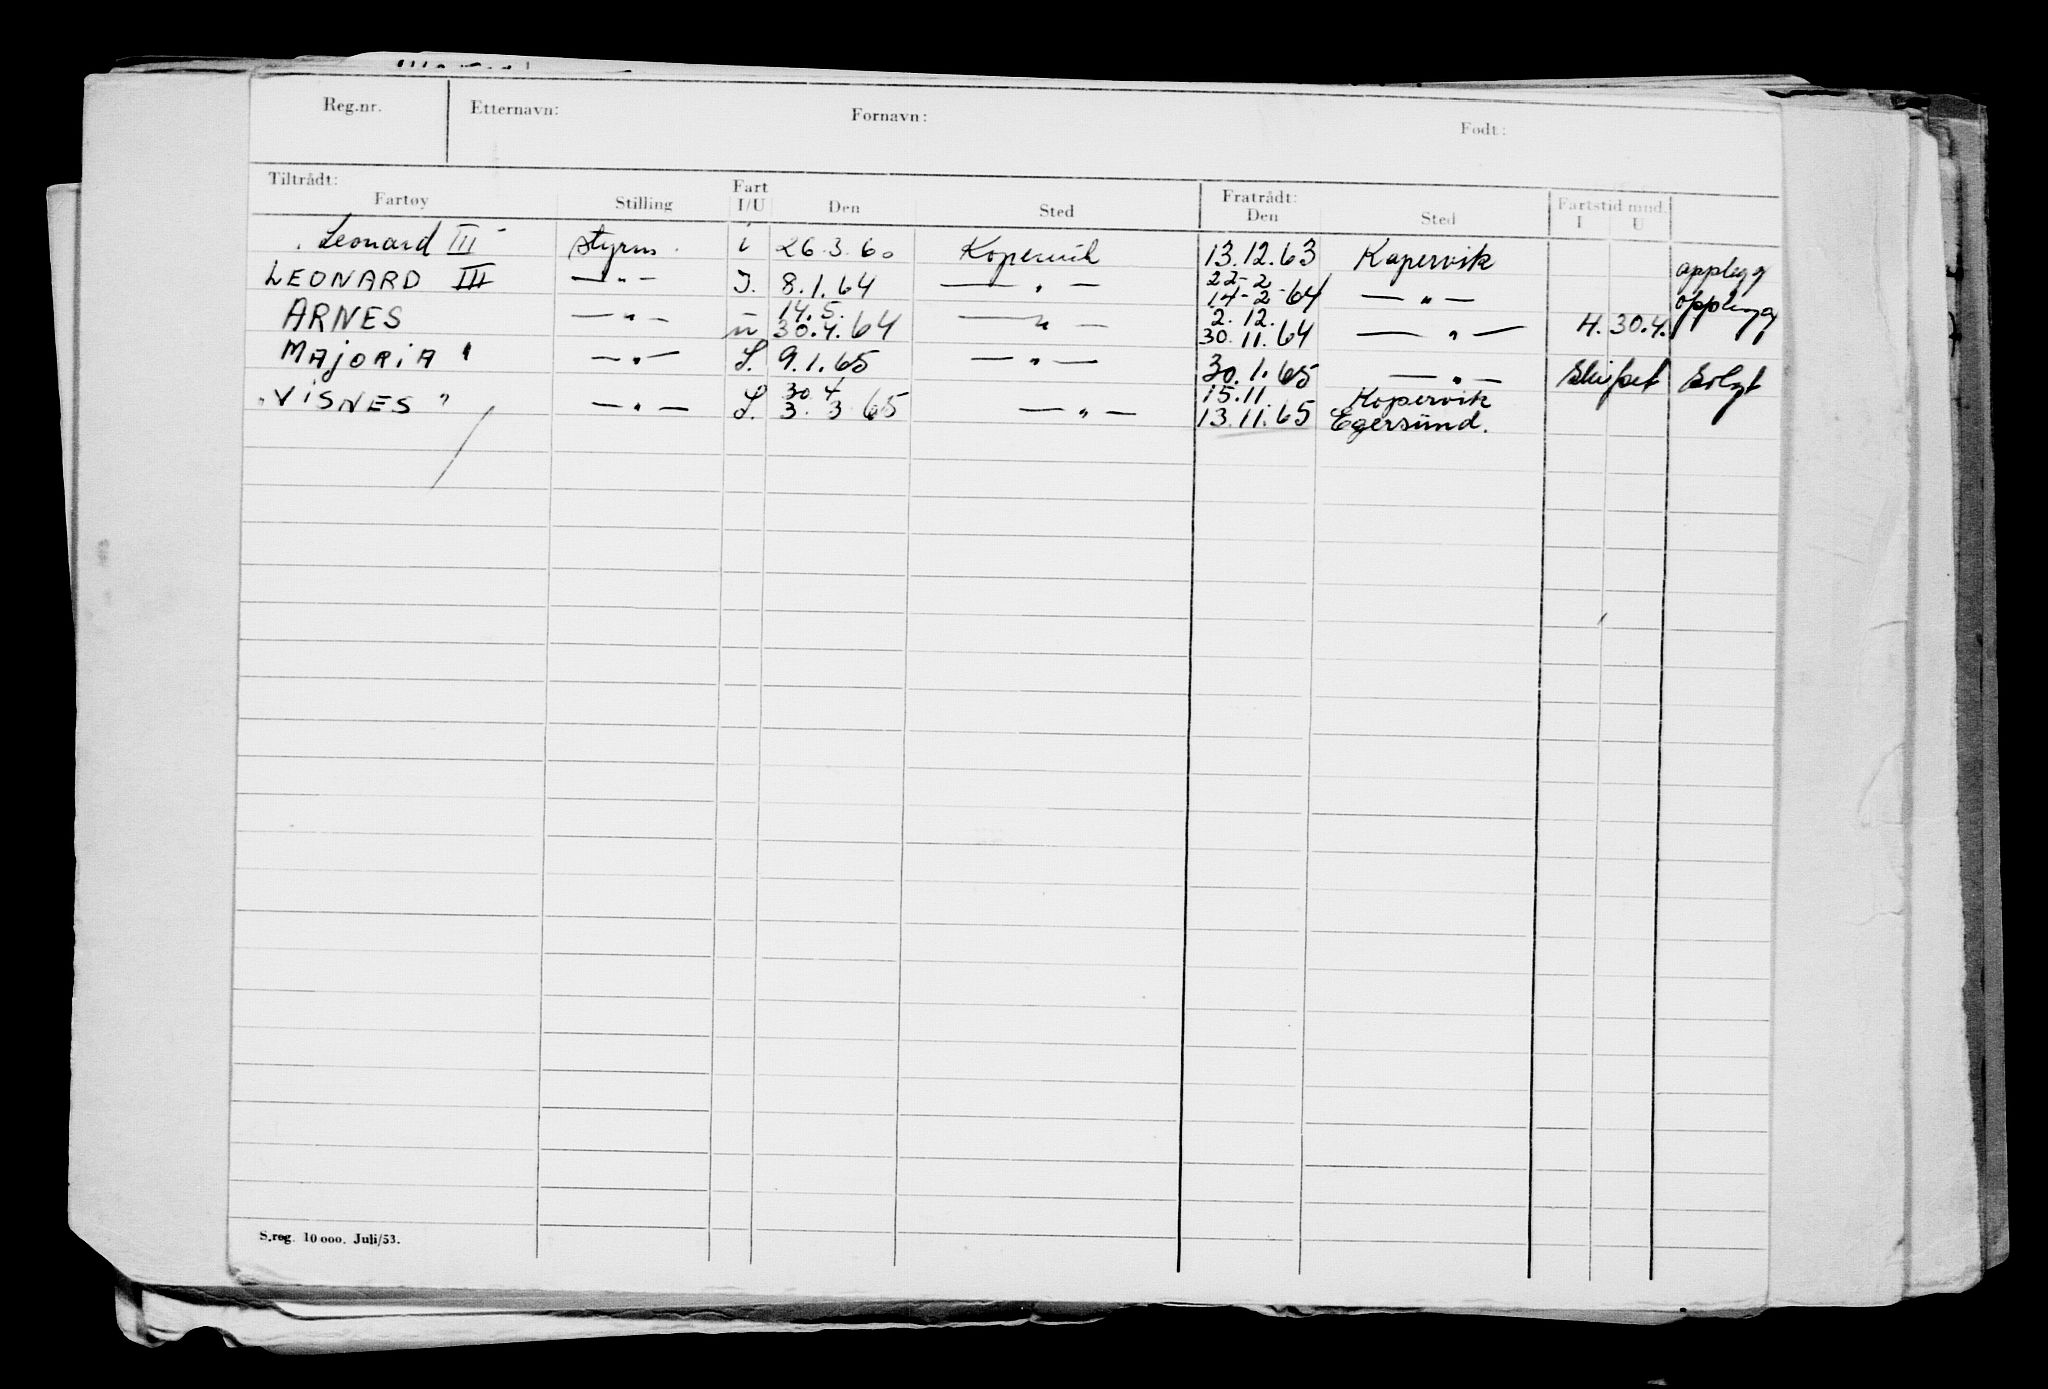 Reg.nr. Etternavn: Fornavn: Født:
Tiltrådt: Fratrådt:
Fartøy Stilling Fart I/U Den Sted Den Sted Fartstid mnd. I U
Leonard III styrm. i 26.3.60 Kopervik 13.12.63 Kopervik opplegg
22-2
LEONARD III —"— I. 8.1.64 —"— 14-2-64 —"— opplegg
14.5. 2.12.
ARNES —"— u 30.4.64 —"— 30.11.64 —"— H. 30.4.
MAJORIA " —"— I. 9.1.65 —"— 30.1.65 —"— Skipet solgt
30.4 15.11 Kopervik
"VISNES" —"— I. 3.3.65 —"— 13.11.65 Egersund.
S.reg. 10 000. Juli/53.